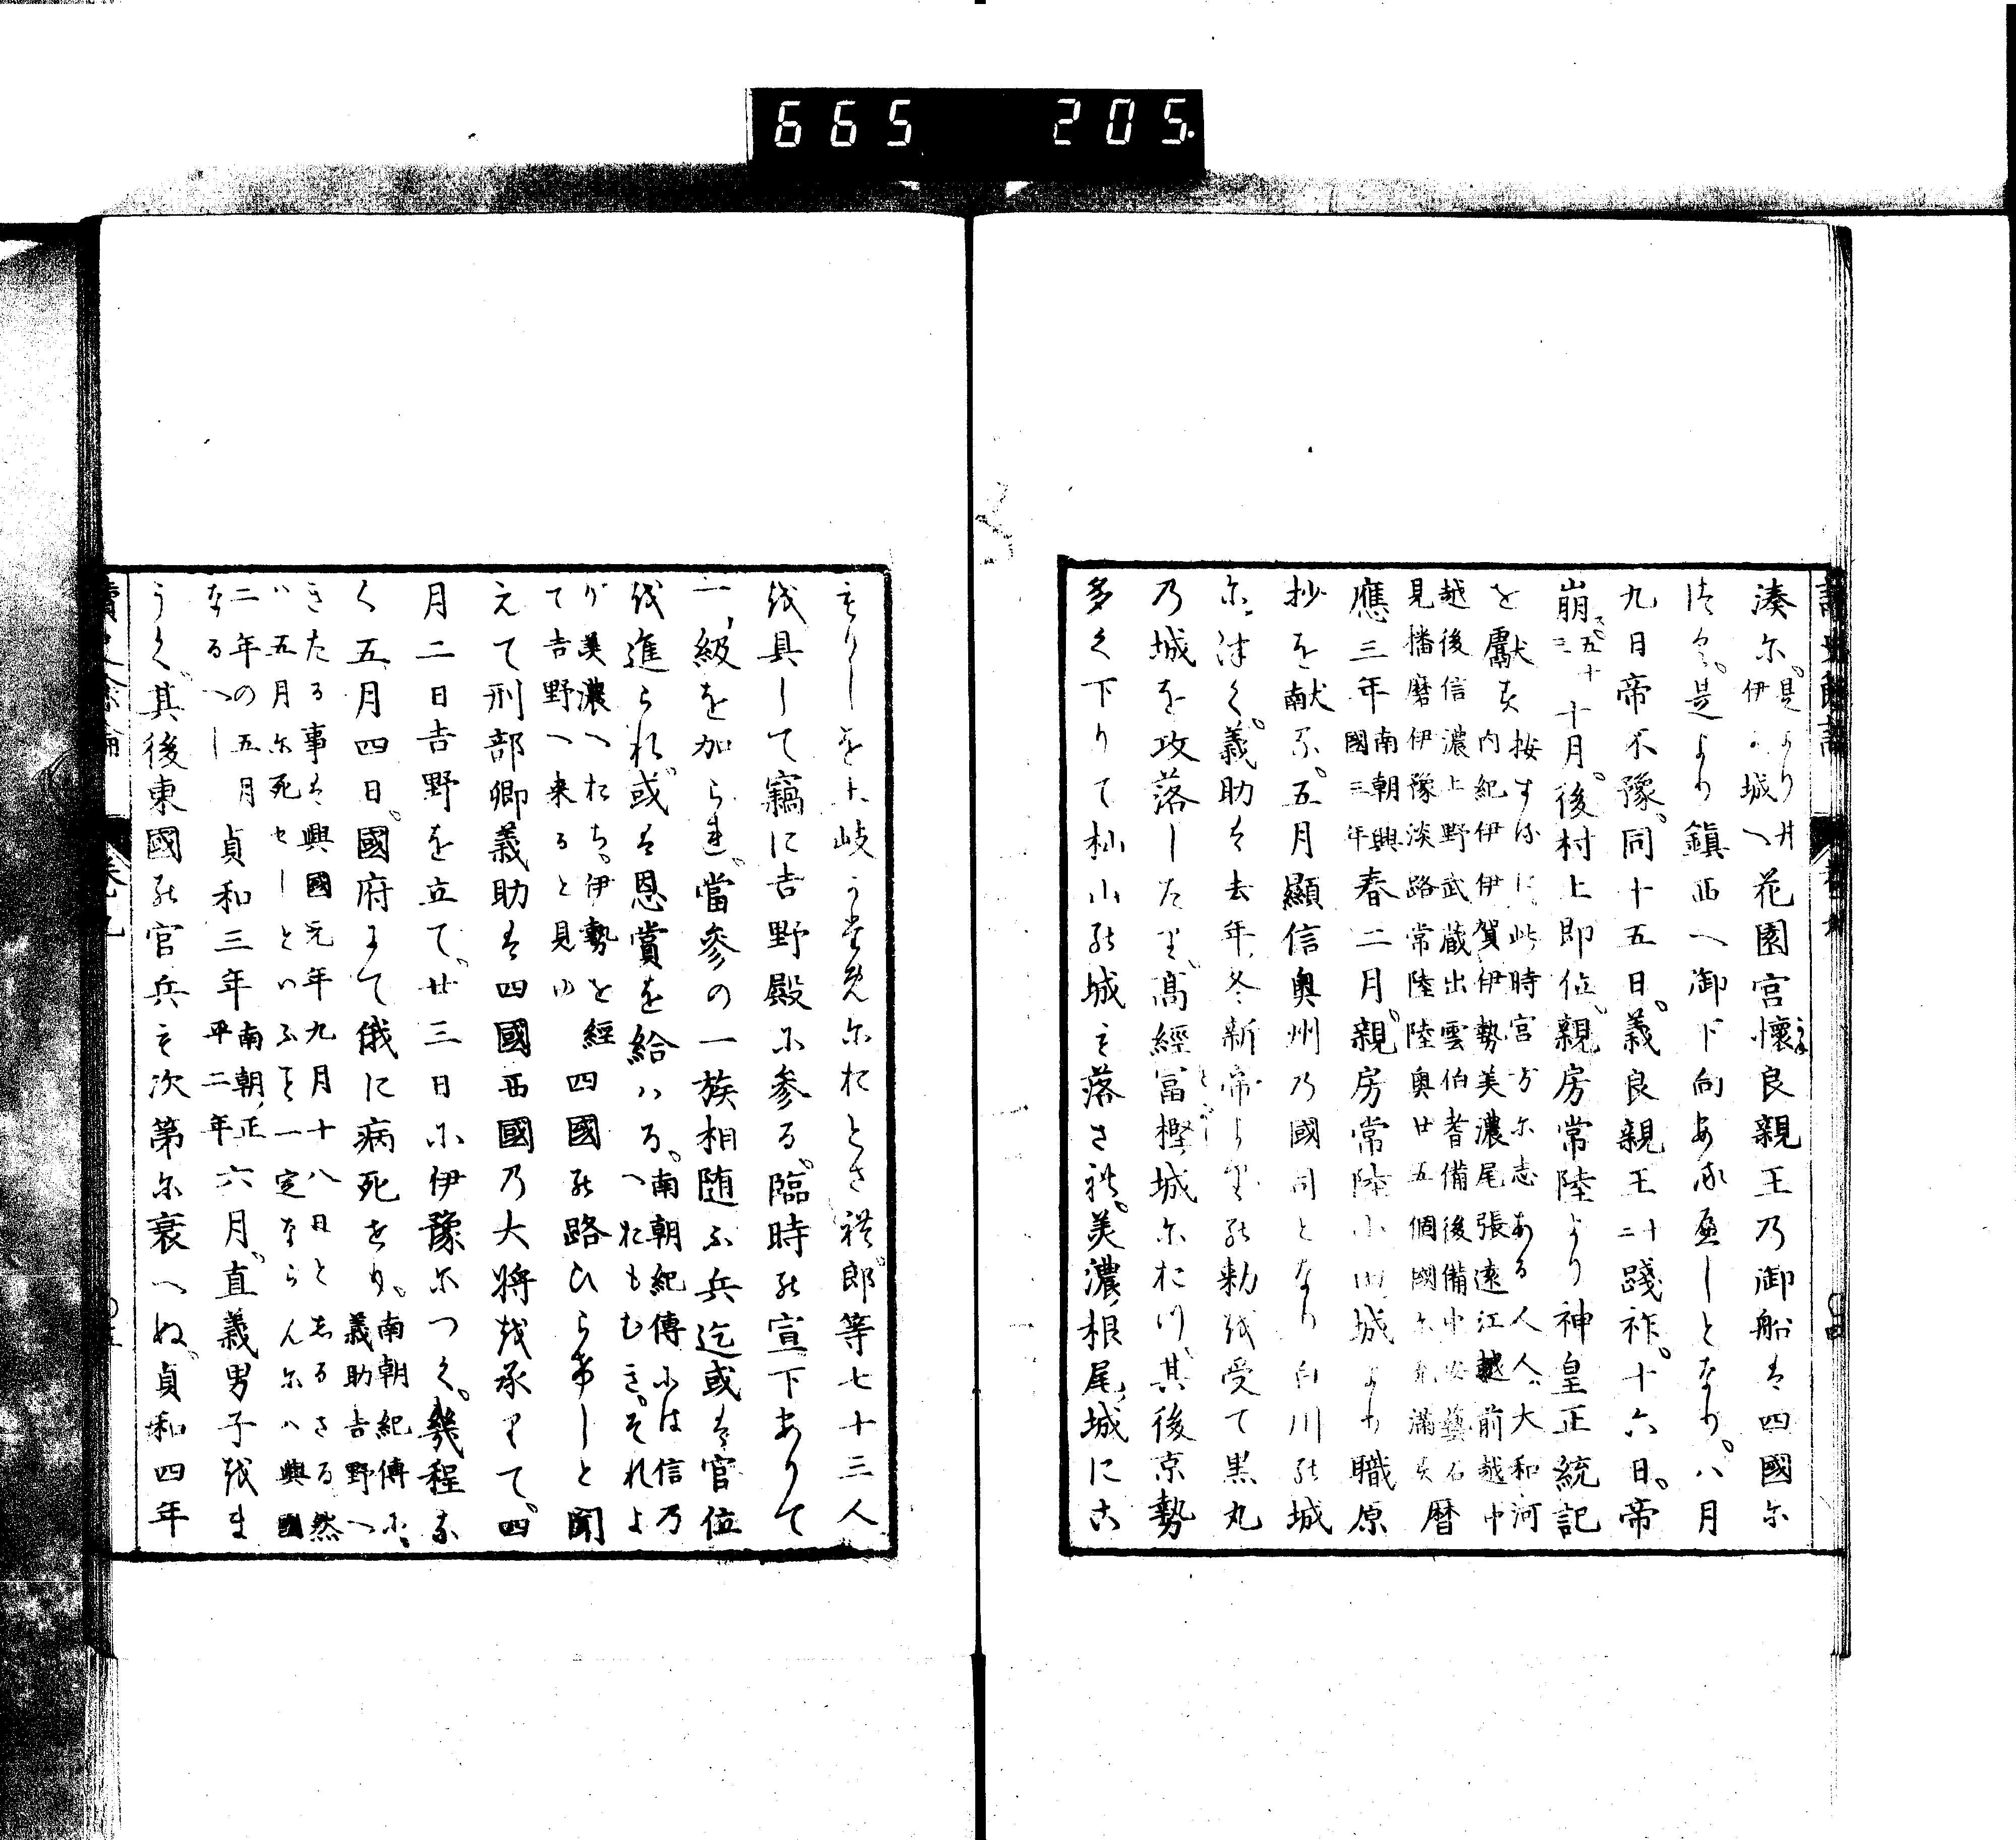 665 205.
湊尓。是より井
伊の城へ花園宮懐良親王乃御船は四國尓
つく。是より鎮西へ御下向あるべしとなり。八月
九日帝不豫。同十五日。義良親王二十践祚。十六日。帝
崩五十二十月。後村上即位。親房常陸より神皇正統記
を獻す按するに此時宮方尓志ある人人大和河
内紀伊伊賀伊勢美濃尾張遠江越前越中
越後信濃上野武蔵出雲伯耆備後備中安藝石
見播磨伊豫淡路常陸陸奥廿五個國尓充満す暦
應三年南朝興國三年春二月。親房常陸小田城より職原
抄を献ず。五月顯信奥州乃國司となり白川の城
尓つく。義助は去年冬新帝よりの勅を受て黒丸
乃城を攻落したり。高經冨樫城尓おつ。其後京勢
多く下りて杣山の城も落され。美濃根尾城にこ
もりしを土岐
尓おとされ。郎等七十三人
を具して竊に吉野殿に参る。臨時の宣下ありて
一級を加らる。當参の一族相随ふ兵迄或は官位
を進られ。或は恩賞を給ハる。南朝紀傳には信乃
へおもむき。それよ
り美濃へおち。伊勢と経
て吉野へ来ると見ゆ四國の路ひらけしと聞
えて刑部卿義助は四國西國乃大将を承りて。四
月二日吉野を立て。廿三日に伊豫尓つく。幾程な
く五月四日。國府にて俄に病死せり。南朝紀傳に、
義助吉野へ
きたる事は興國元年九月十八日としるさる然
ハ五月尓死セしといふも一定ならんにハ興國
二年の五月
なるへし貞和三年南朝正
平二年六月。直義男子をま
うく。其後東國の官兵も次第尓衰へぬ。貞和四年